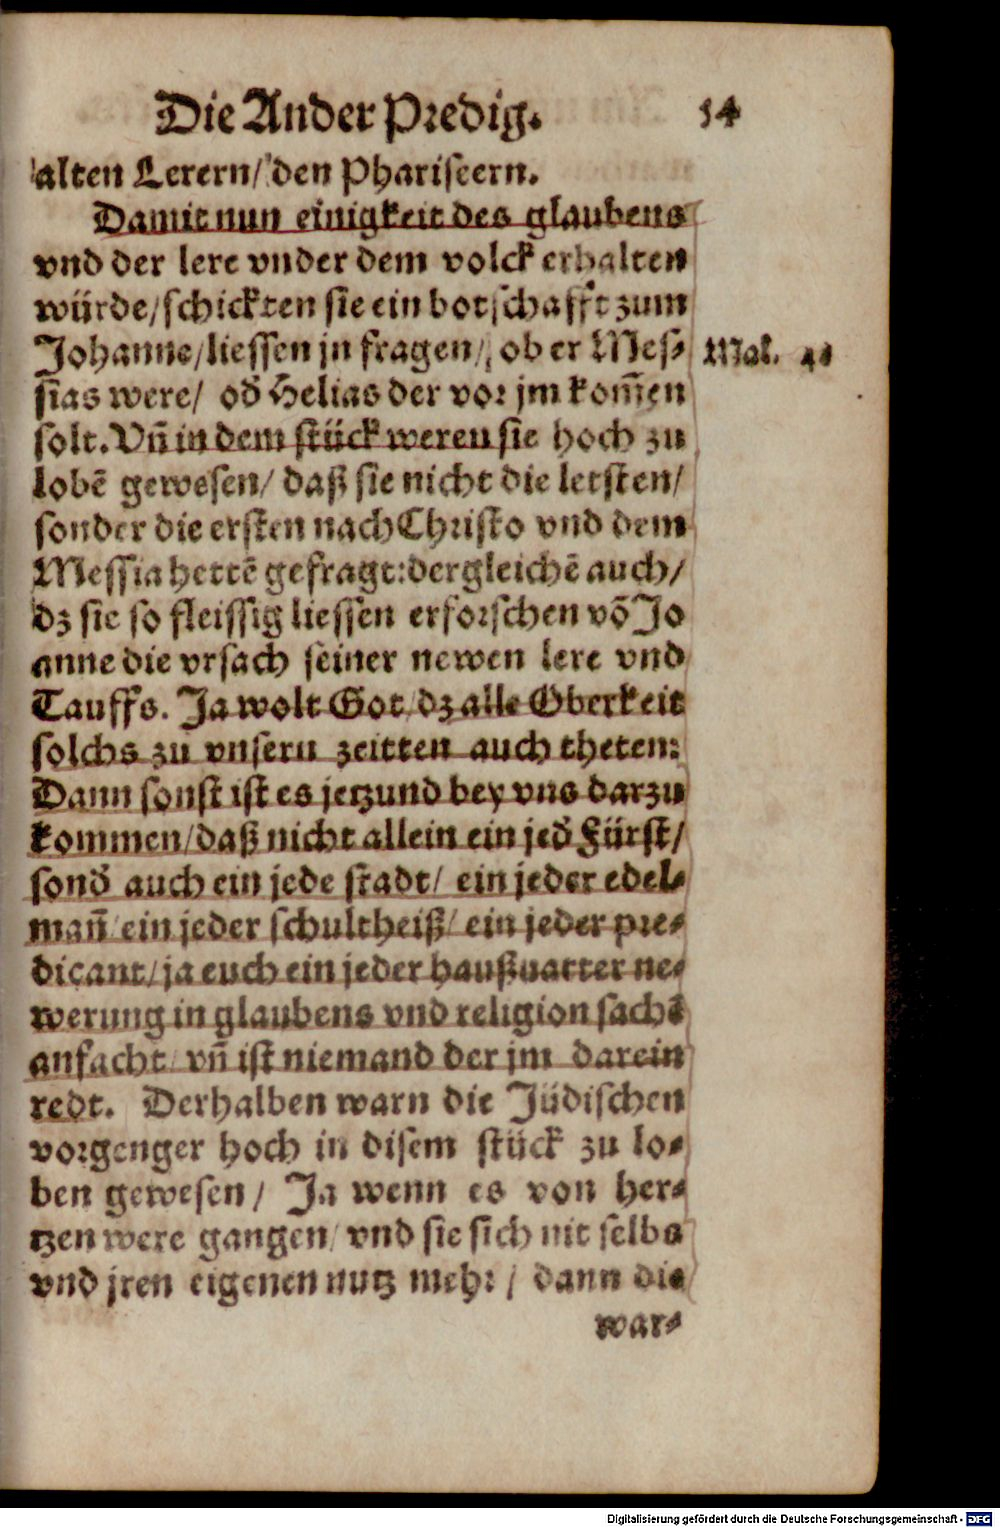 Die Ander Predig. 14
alten Lerern/ den Phariseern.
Damit nun einigkeit des glaubens
vnd der lere vnder dem volck erhalten
würde/ schickten sie ein botschafft zum
Johanne/ liessen jn fragen/ ob er Mes⸗
Mal. 4.
sias were/ od̄ Helias der vor jm kom̄en
solt. Vn̄ in dem stück weren sie hoch zu
lobē gewesen/ daß sie nicht die letsten/
sonder die ersten nach Christo vnd dem
Messia hettē gefragt: dergleichē auch/
dz sie so fleissig liessen erforschen vō Jo
anne die vrsach seiner newen lere vnd
Tauffs. Ja wolt Got/ dz alle Oberkeit
solchs zu vnsern zeitten auch theten:
Dann sonst ist es jetzund bey vns darzu
kommen/ daß nicht allein ein jed̄ Fürst/
sond̄ auch ein jede stadt/ ein jeder edel⸗
man̄/ ein jeder schultheiß/ ein jeder pre⸗
dicant/ ja euch ein jeder haußuatter ne⸗
werung in glaubens vnd religion sachē
anfacht/ vn̄ ist niemand der jm darein
redt. Derhalben warn die Jüdischen
vorgenger hoch in disem stück zu lo⸗
ben gewesen/ Ja wenn es von her⸗
tzen were gangen/ vnd sie sich nit selbs
vnd jren eigenen nutz mehr/ dann die
war⸗
Digitalisierung gefördert durch die Deutsche Forschungsgemeinschaft - DFG